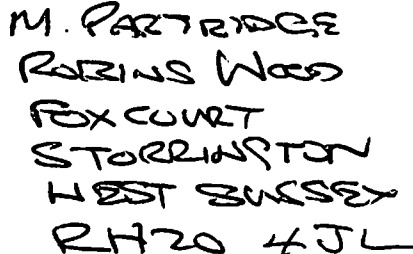 M. PARTRIDGE
ROBINS WOOD
FOXCOURT
STORRINGTON
WEST SUSSEX
RH20 4JL